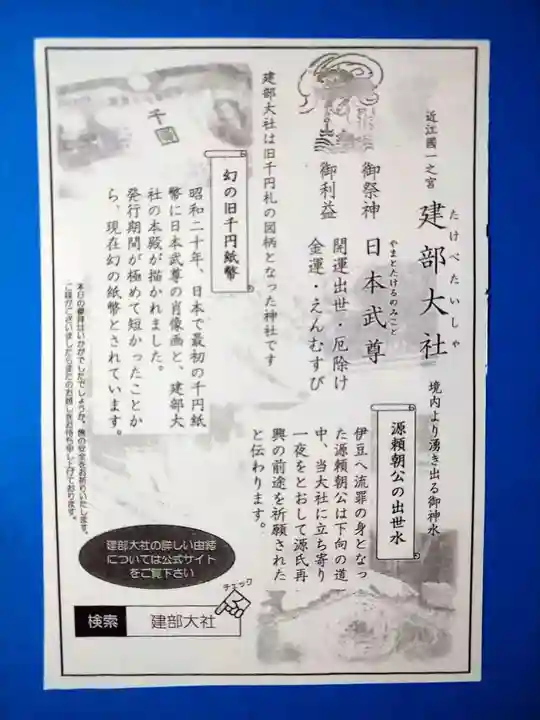 近江國一之宮
建部大社
たけべたいしゃ
御祭神 日本武尊
やまとたけるのみこと
御利益 開運出世・厄除け
金運・えんむすび
建部大社は旧千円札の図柄となった神社です
境内より湧き出る御神水
源頼朝公の出世水
伊豆へ流罪の身となっ
た源頼朝公は下向の道
中、当大社に立ち寄り
一夜をとおして源氏再
興の前途を祈願された
と伝わります。
千圓
幻の旧千円紙幣
昭和二十年、日本で最初の千円紙
幣に日本武尊の肖像画と、建部大
社の本殿が描かれました。
発行期間が極めて短かったことか
ら、現在幻の紙幣とされています。
本日の参拝はいかがでしたでしょうか。旅の安全をお祈りいたします。
ご縁がございましたらまたのお越しをお待ち申し上げております。
建部大社の詳しい由緒
については公式サイト
をご覧下さい
チェック
検索 建部大社